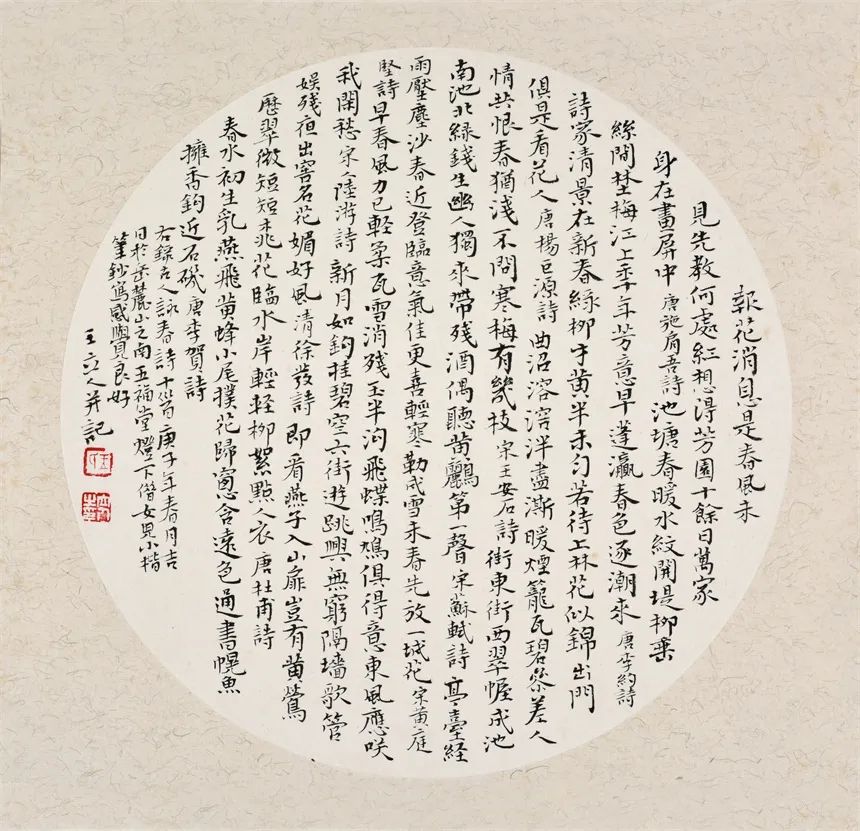 報花消息是春風未
見先教何處紅想得芳園十餘日萬家
身在畫屏中唐施肩吾詩池塘春暖水紋開堤柳垂
絲間埜梅江上年年芳意早蓬瀛春色逐潮來唐李約詩
詩家清景在新春綠柳才黃半未勻若待上林花似錦出門
俱是看花人唐楊巨源詩曲沼溶溶泮盡澌暖煙籠瓦碧參差人
情共恨春猶淺不問寒梅有幾枝宋王安石詩街東街西翠幄成池
南池北綠錢生幽人獨來帶殘酒偶聽黃鸝第一聲宋蘇軾詩亭臺經
雨壓塵沙春近登臨意氣佳更喜輕寒勒成雪未春先放一城花宋黃庭
堅詩早春風力已輕柔瓦雪消殘玉半沟飛蝶鳴鳩俱得意東風應咲
我閑愁宋人陸游詩新月如鉤挂碧空六街遊跳興無窮隔墻歌管
娛殘夜出窖名花媚好風清徐發詩即看燕子入山扉豈有黃鶯
歷翠微短短桃花臨水岸輕輕柳絮點人衣唐杜甫詩
春水初生乳燕飛黃蜂小尾撲花歸窗含遠色通書幌魚
擁香鉤近石磯唐李賀詩
右錄古人詠春詩十首庚子年春月吉
日於岳麓山之南五福堂燈下借女兒小楷
筆鈔寫感興良好
王立人并記